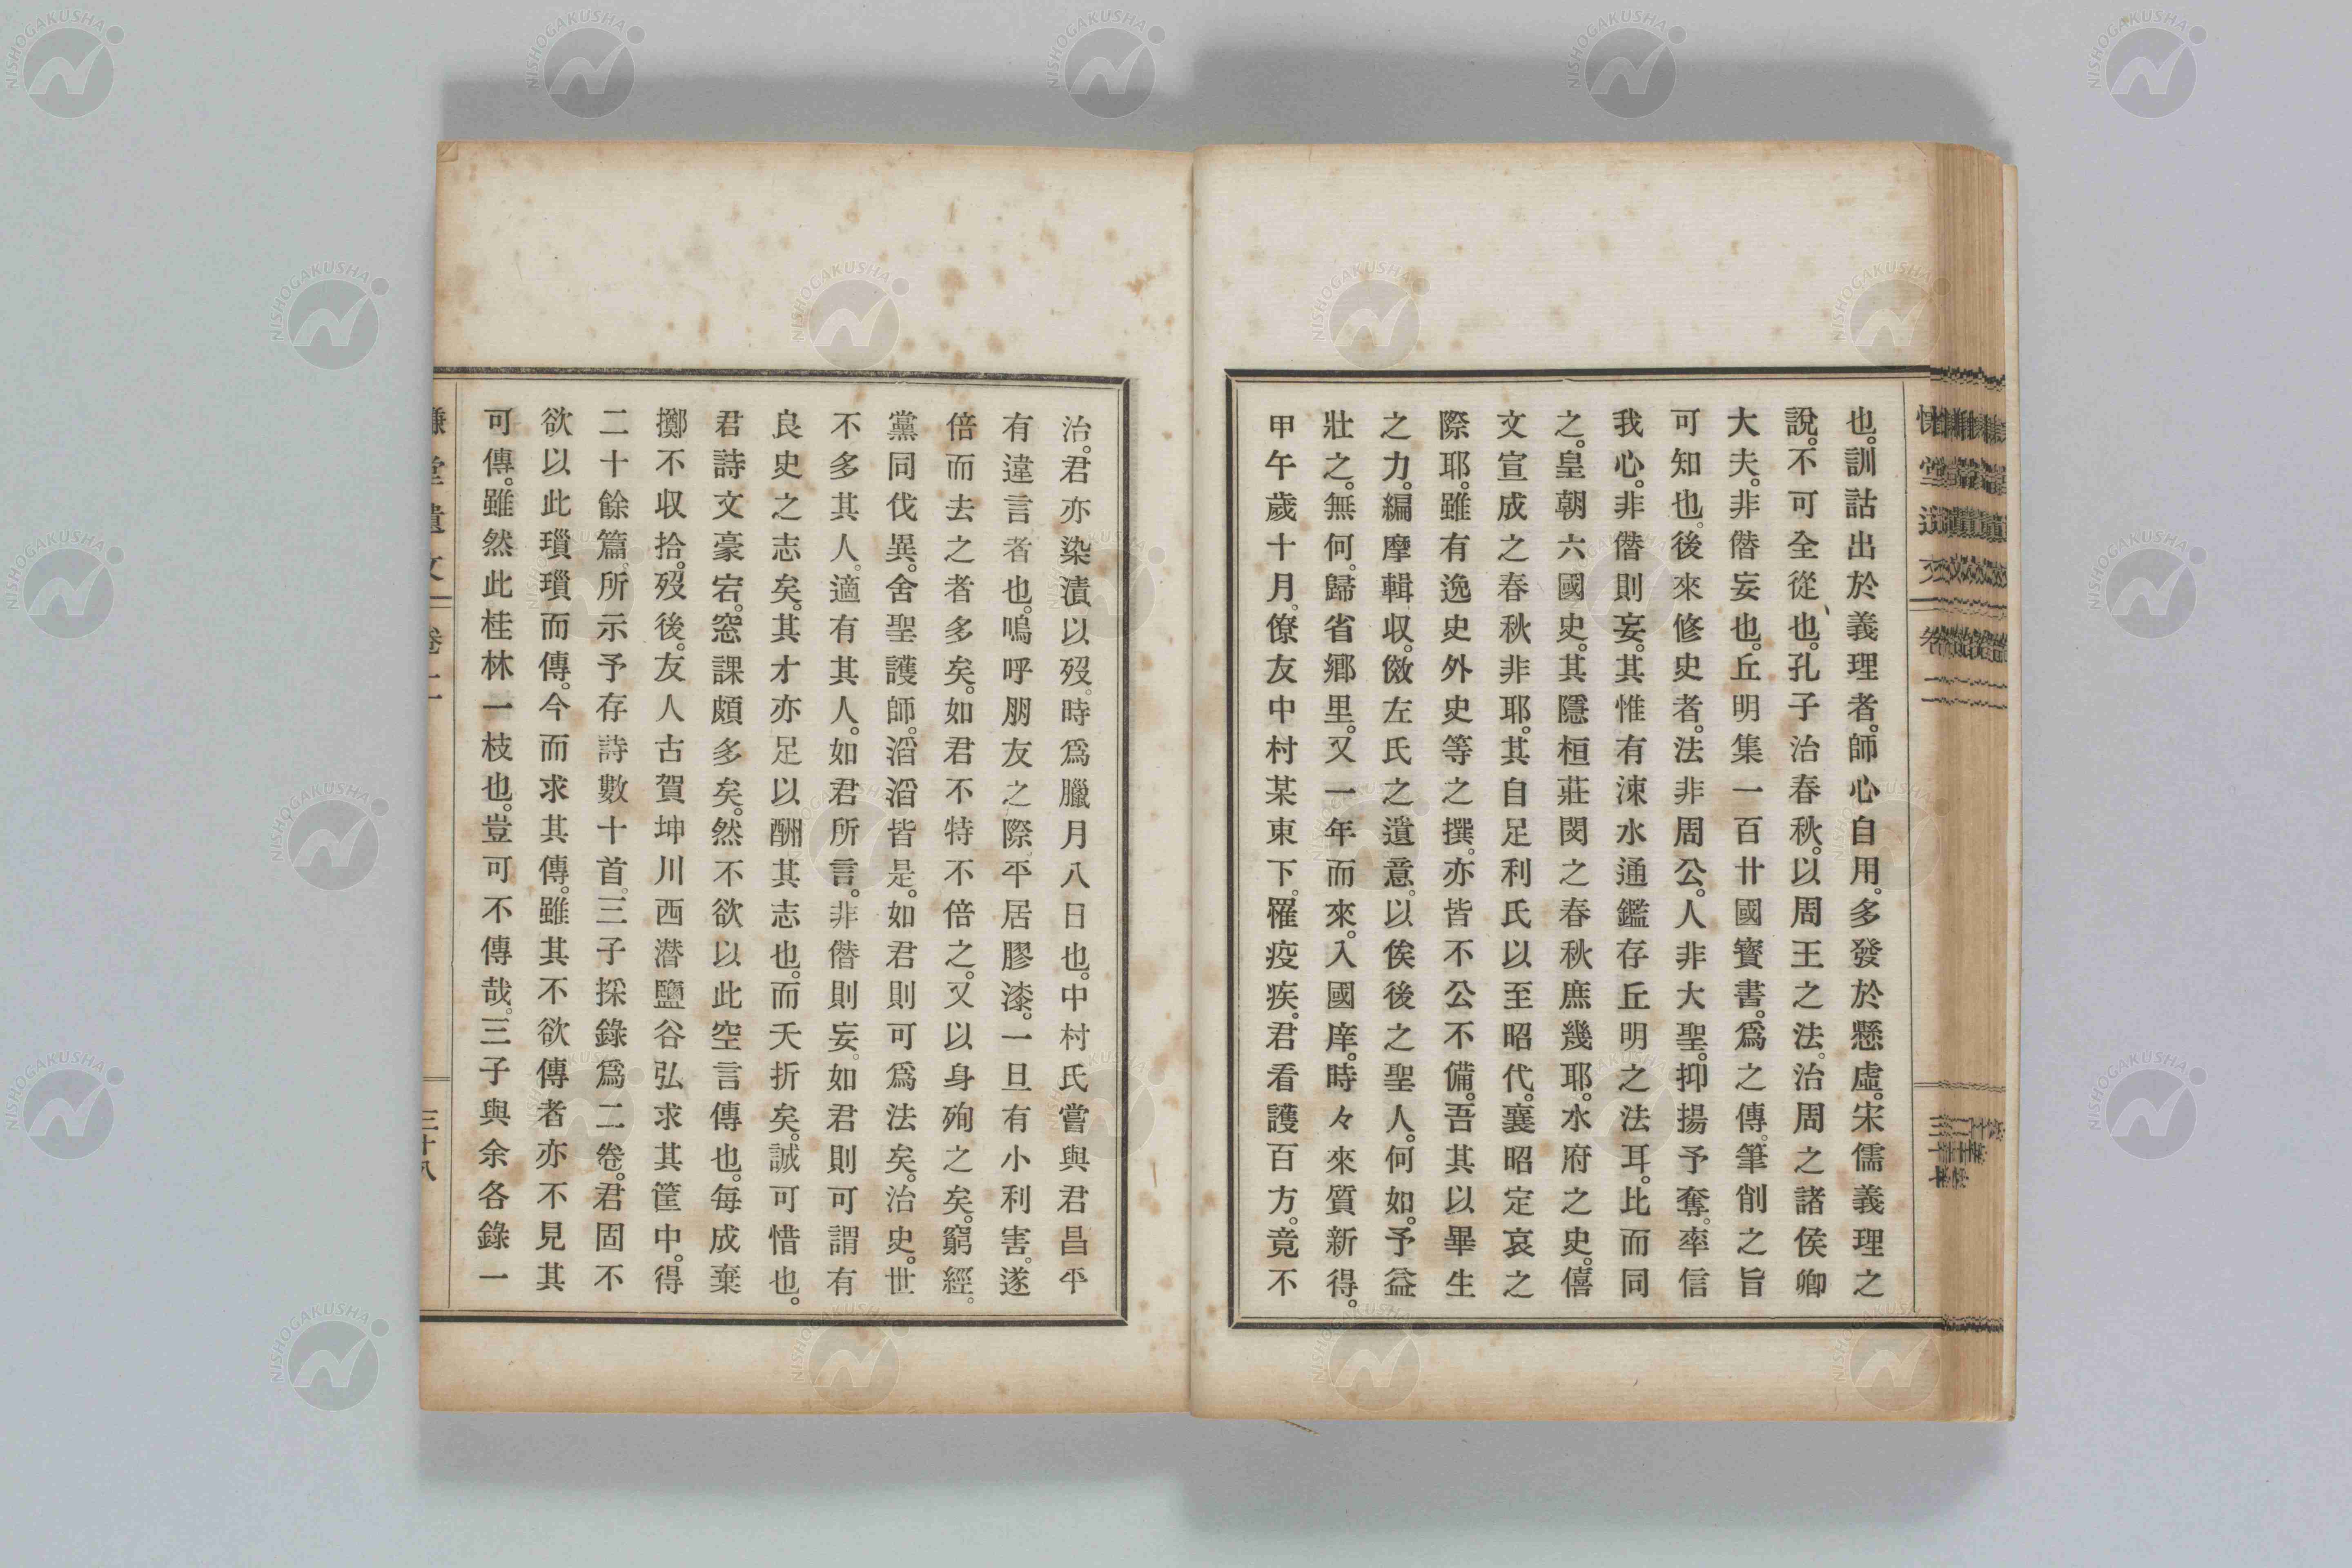 也。訓詁出於義理者。師心自用。多發於懸虛。宋儒義理之
說。不可全從也。孔子治春秋。以周王之法。治周之諸侯卿
大夫。非僭妄也。丘明集一百廿國寳書。爲之傳。筆削之旨
可知也。後來修史者。法非周公。人非大聖。抑揚予奪。率信
我心。非僭則妄。其惟有涑水通鑑存丘明之法耳。比而同
之。皇朝六國史。其隱桓莊閔之春秋庶幾耶。水府之史。僖
文宣成之春秋非耶。其自足利氏以至昭代。襄昭定哀之
際耶。雖有逸史外史等之撰。亦皆不公不備。吾其以畢生
之力。編摩輯収。倣左氏之遺意。以俟後之聖人。何如。予益
壯之。無何。歸省鄉里。又一年而來。入國庠。時々來質新得。
甲午歲十月。僚友中村某東下。罹疫疾。君看護百方。竟不
治。君亦染漬以歿。時爲臘月八日也。中村氏嘗與君昌平
有違言者也。嗚呼朋友之際。平居膠漆。一旦有小利害。遂
倍而去之者多矣。如君不特不倍之。又以身殉之矣。窮經。
黨同伐異。舍聖護師。滔滔皆是。如君則可爲法矣。治史。世
不多其人。適有其人。如君所言。非僭則妄。如君則可謂有
良史之志矣。其才亦足以酬其志也。而夭折矣。誠可惜也。
君詩文豪宕。窓課頗多矣。然不欲以此空言傳也。每成棄
擲不収拾。歿後。友人古賀坤川西潛鹽谷弘求其筐中。得
二十餘篇。所示予存詩數十首。三子採錄爲二卷。君固不
欲以此瑣瑣而傳。今而求其傳。雖其不欲傳者亦不見其
可傳。雖然此桂林一枝也。豈可不傳哉。三子與余各錄一
慊堂遺文 卷二 三十八